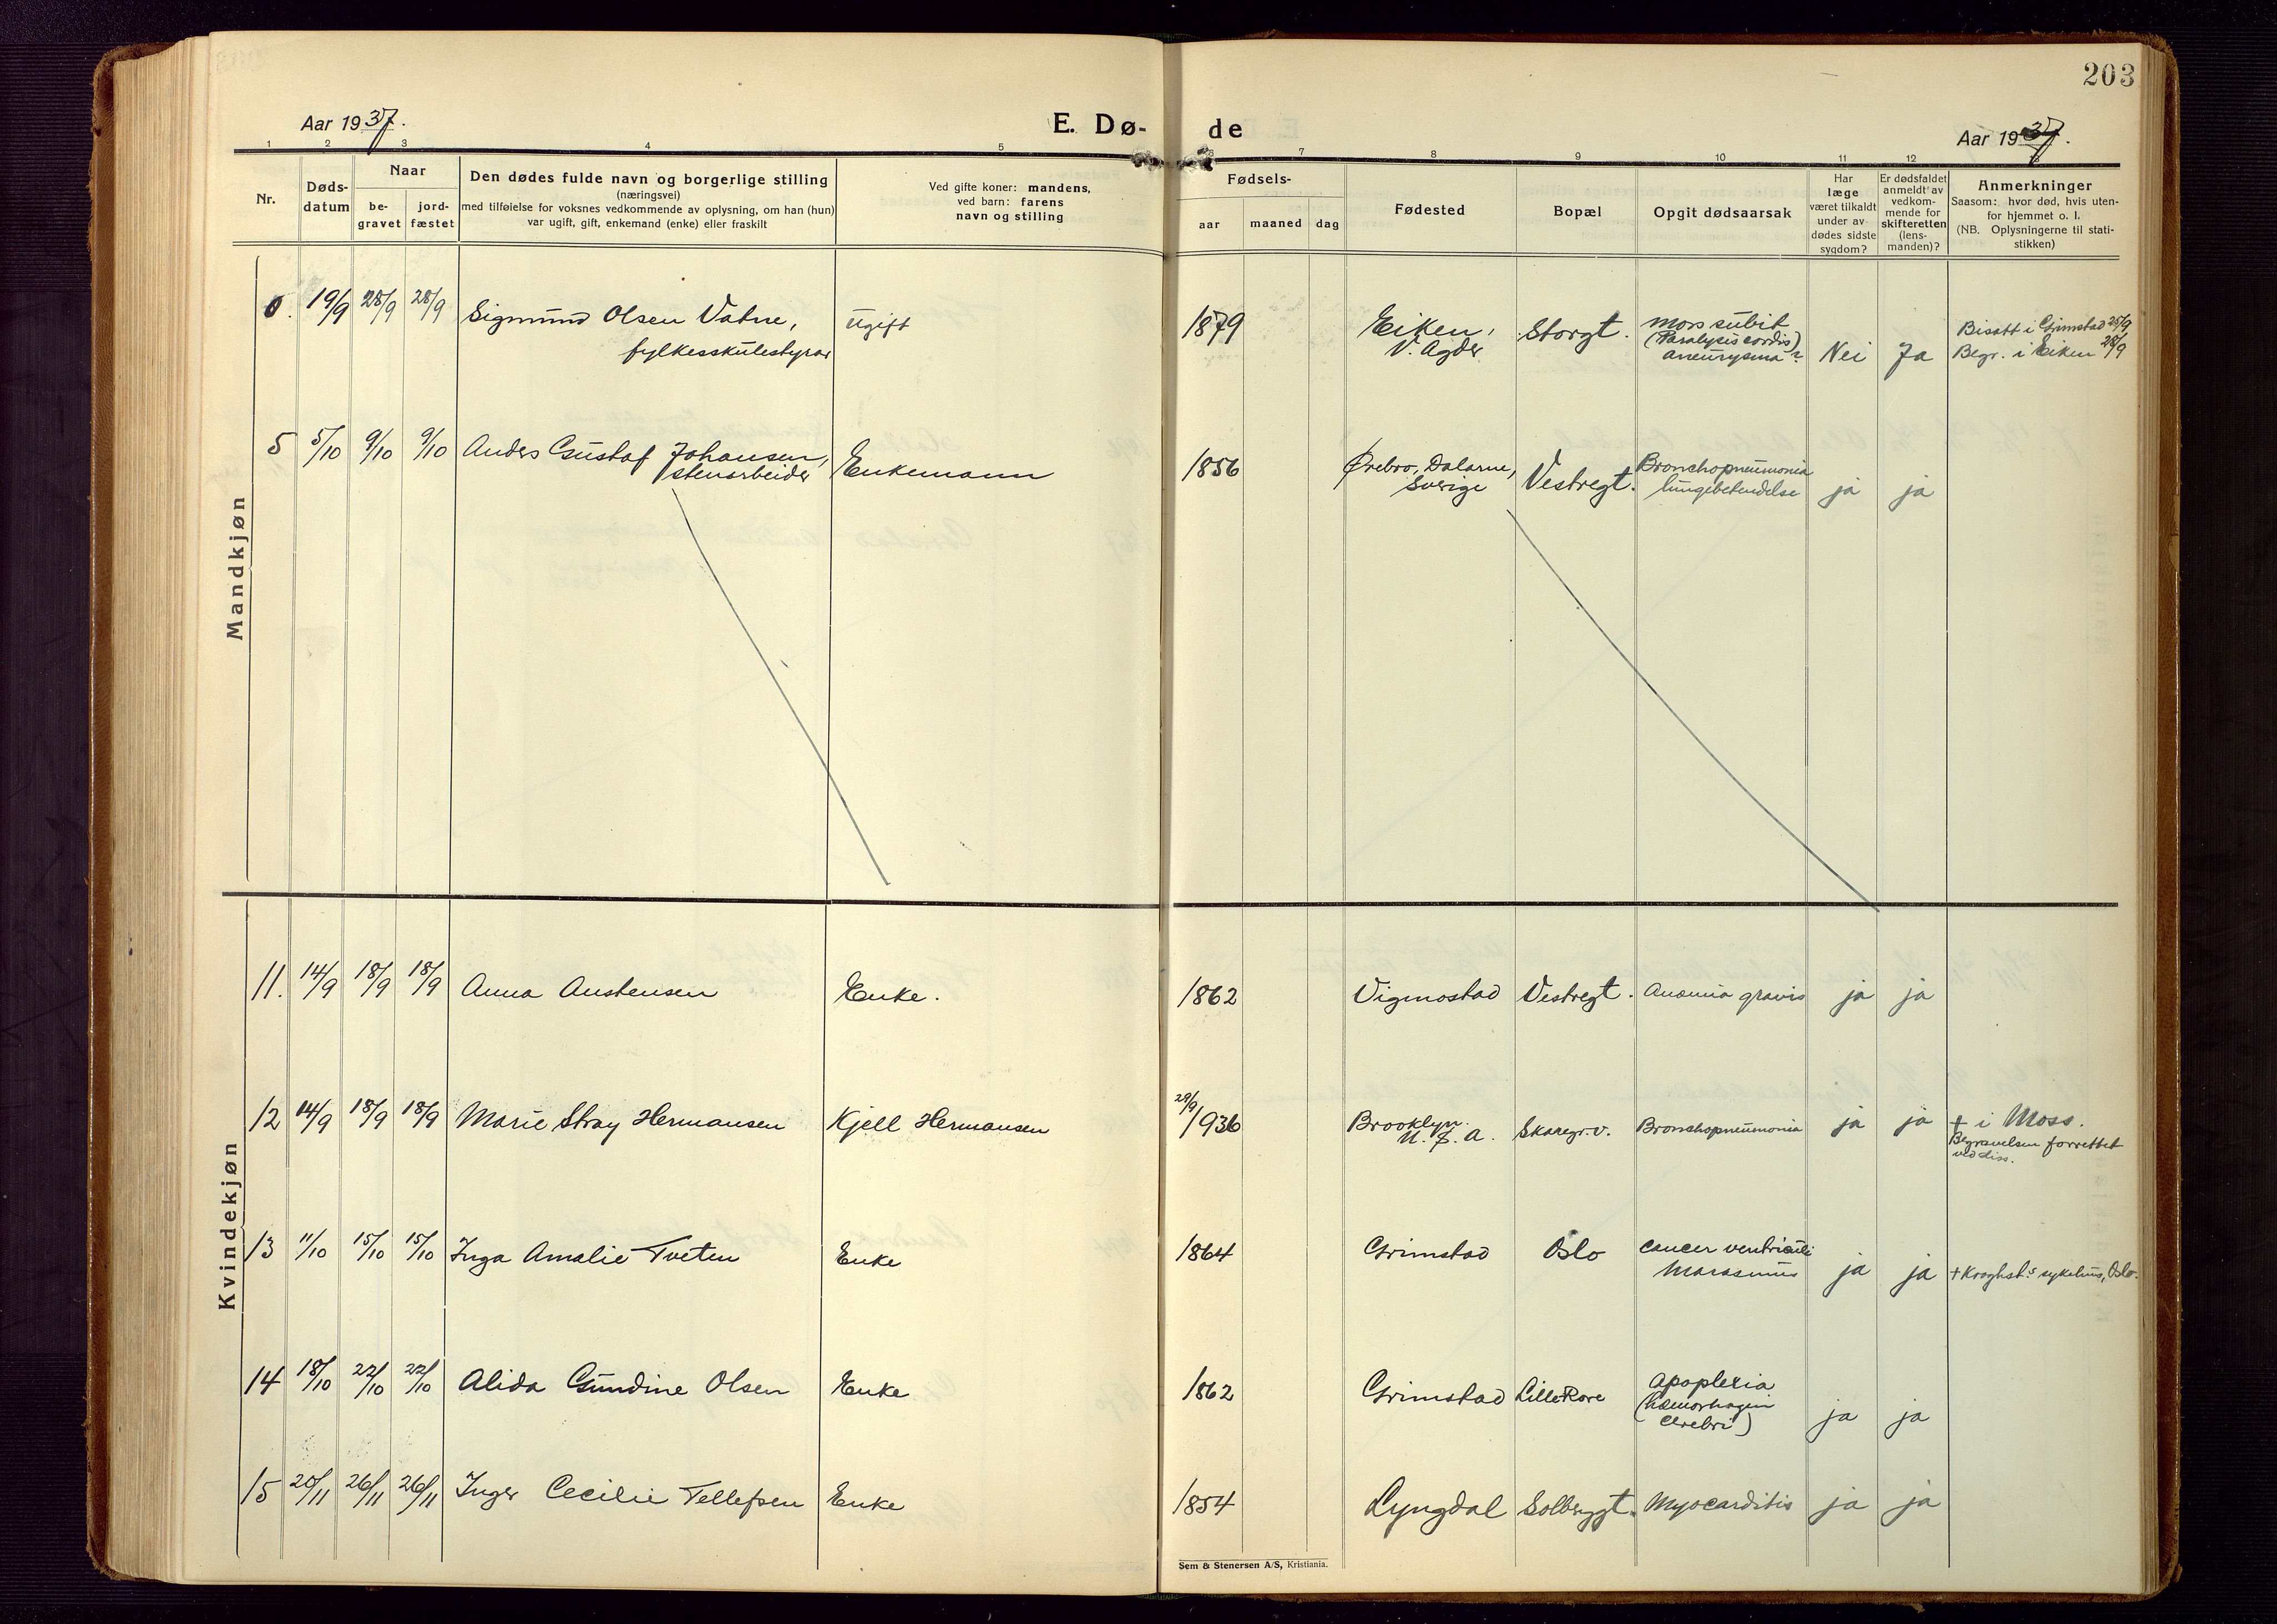 203
Aar 1937.
E. Dø- de
Aar 1937.
1 2 3 4 5 6 7 8 9 10 11 12 13
Nr.
Døds-
datum
Naar
be-
gravet
jord-
fæstet
Den dødes fulde navn og borgerlige stilling
(næringsvei)
med tilføielse for voksnes vedkommende av oplysning, om han (hun)
var ugift, gift, enkemand (enke) eller fraskilt
Ved gifte koner: mandens,
ved barn: farens
navn og stilling
Fødsels-
aar maaned dag
Fødested
Bopæl
Opgit dødsaarsak
Har
læge
været tilkaldt
under av-
dødes sidste
sygdom?
Er dødsfaldet
anmeldt av
vedkom-
mende for
skifteretten
(lens-
manden)?
Anmerkninger
Saasom: hvor død, hvis uten-
for hjemmet o. l.
(NB. Oplysningerne til stati-
stikken)
Mandkjøn
19/9 28/9 28/9 Sigmund Olsen Vatne,
fylkesskulestyrar
ugift
1879
Eiken,
V. Agder
Storgt.
Mors subit
(Paralysis cordis)
aneurysma?
Nei Ja
Bisatt i Grimstad 25/9
Begr. i Eiken 28/9
5 5/10 9/10 9/10 Anders Gustaf Johansen,
stenarbeider
Enkemann
1856
Ørebro, Dalarne,
Sverige
Vestregt.
Bronchopneumonia
lungebetendelse
ja ja
Kvindekjøn
11. 14/9 18/9 18/9 Anna Austensen Enke. 1862 Vigmostad Vestregt. Anæmia gravis ja ja
12 14/9 18/9 18/9 Marie Stray Hermansen Kjell Hermansen 29/9 1936
Brooklyn.
U. S. A.
Skaregr.v. Bronchopneumonia ja ja
+ i Moss.
Begravelsen forrettet
ved diss.
13 11/10 15/10 15/10 Inga Amalie Tveten Enke 1864 Grimstad Oslo
cancer ventriculi
Marasmus
ja ja + Kroghst.s sykehus, Oslo.
14 18/10 22/10 22/10 Alida Gundine Olsen Enke 1862 Grimstad LilleRore
Apoplexia
(hæmorhagia
cerebri)
ja ja
15 20/11 26/11 26/11 Inger Cecilie Tellefsen Enke 1854 Lyngdal Solbergt. Myocarditis ja ja
Sem & Stenersen A/S, Kristiania.